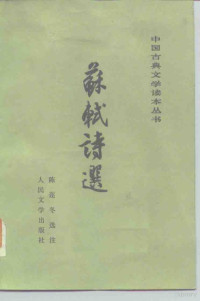 中国古典文学读本丛书
蘇軾詩選
陈迩冬选注
人民文学出版社